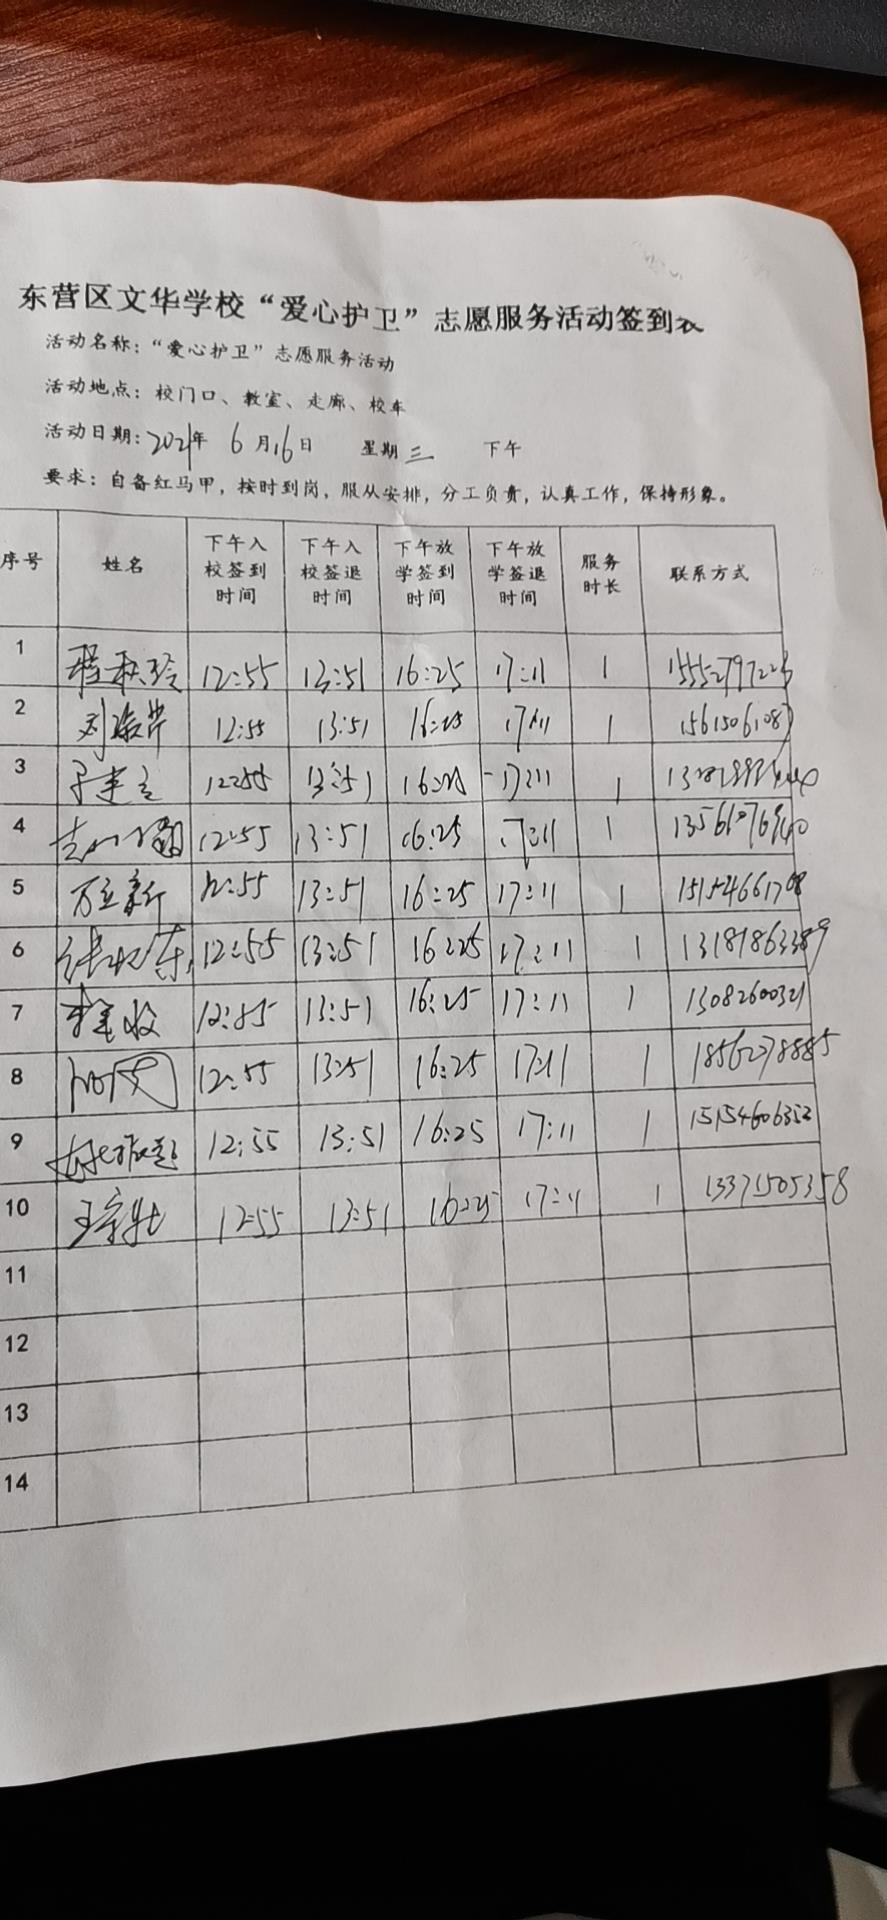 东营区文华学校“爱心护卫”志愿服务活动签到表
活动名称：“爱心护卫”志愿服务活动
活动地点：校门口、教室、走廊、校车
活动日期：2021年 6月16日 星期三 下午
要求：自备红马甲，按时到岗，服从安排，分工负责，认真工作，保持形象。
序号 姓名 下午入校签到时间 下午入校签退时间 下午放学签到时间 下午放学签退时间 服务时长 联系方式
1 程秋玲 12:55 13:51 16:25 17:11 1
2 12:55 13:51 16:25 17:11 1
3 12:55 13:51 16:25 17:11 1
4 12:55 13:51 16:25 17:11 1
5 万立新 12:55 13:51 16:25 17:11 1 15154661708
6 12:55 13:51 16:25 17:11 1 13181863389
7 12:55 13:51 16:25 17:11 1 13082600321
8 12:55 13:51 16:25 17:11 1 18562278885
9 12:55 13:51 16:25 17:11 1 15154606352
10 12:55 13:51 16:25 17:11 1 13371505358
11
12
13
14